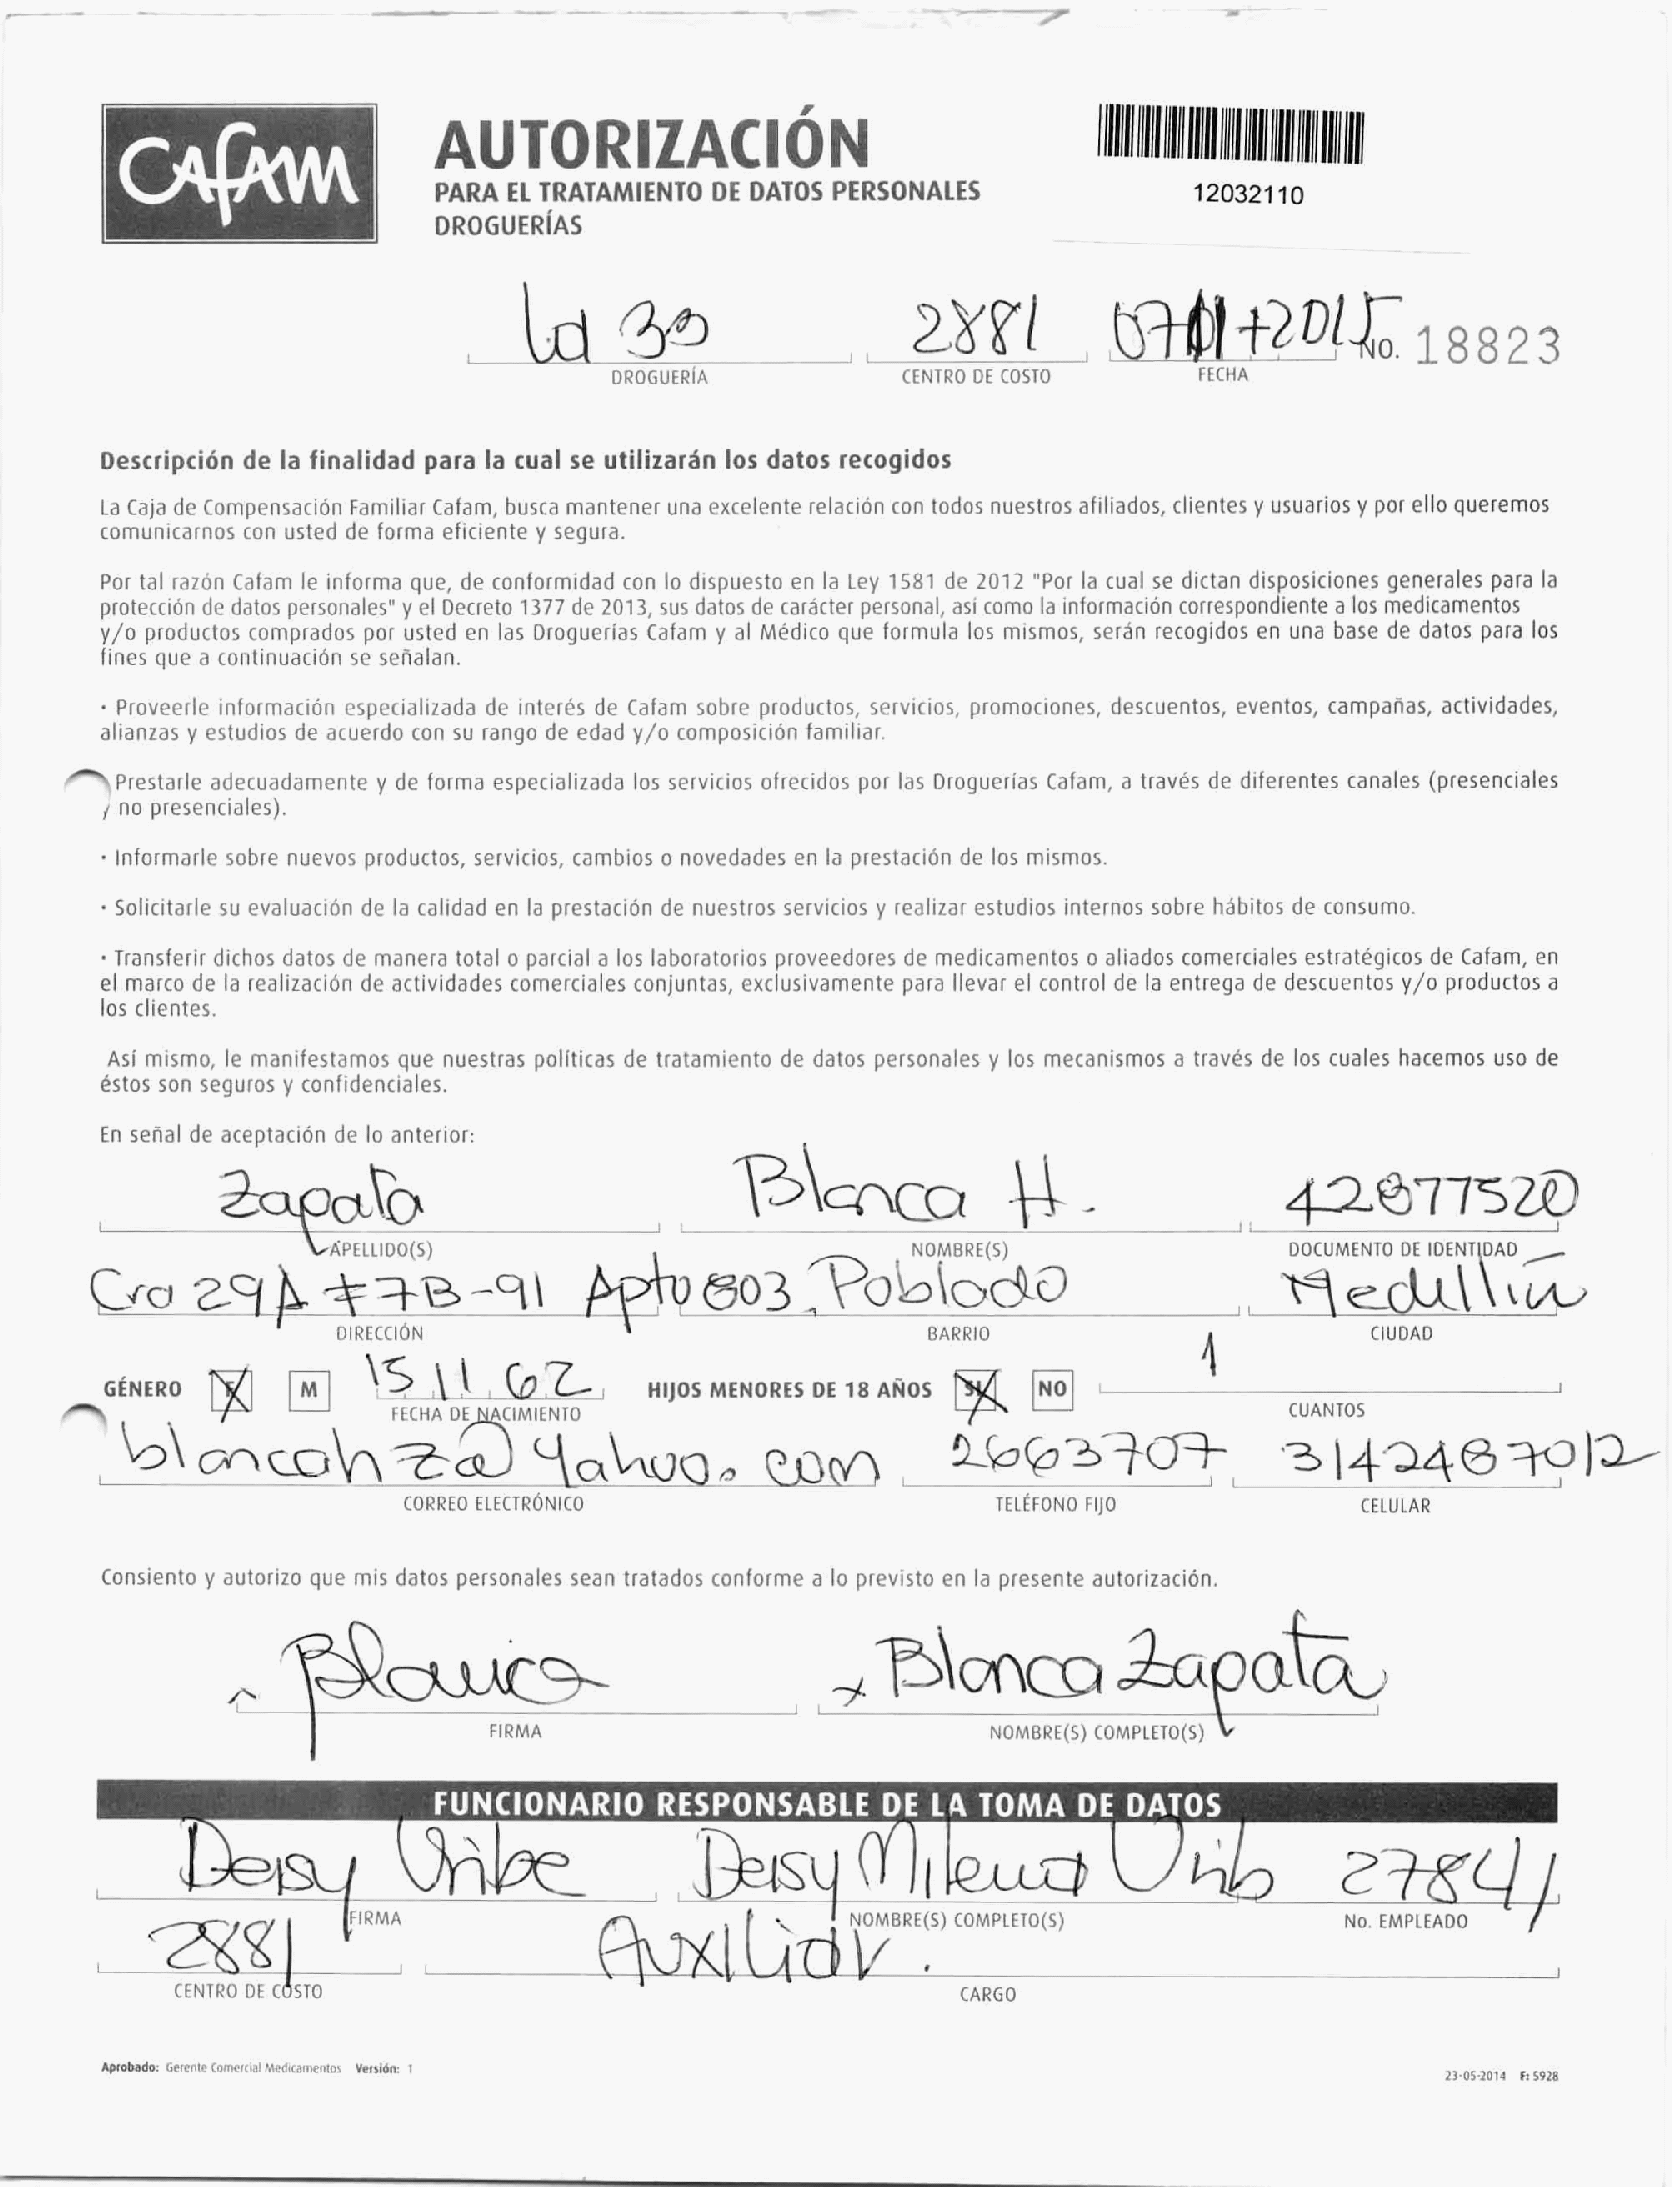 CAFAM
AUTORIZACIÓN
PARA EL TRATAMIENTO DE DATOS PERSONALES
DROGUERÍAS
12032110
la 30 2881 07 01 2015 No. 18823
DROGUERÍA CENTRO DE COSTO FECHA
Descripción de la finalidad para la cual se utilizarán los datos recogidos
La Caja de Compensación Familiar Cafam, busca mantener una excelente relación con todos nuestros afiliados, clientes y usuarios y por ello queremos
comunicarnos con usted de forma eficiente y segura.
Por tal razón Cafam le informa que, de conformidad con lo dispuesto en la Ley 1581 de 2012 "Por la cual se dictan disposiciones generales para la
protección de datos personales" y el Decreto 1377 de 2013, sus datos de carácter personal, así como la información correspondiente a los medicamentos
y/o productos comprados por usted en las Droguerías Cafam y al Médico que formula los mismos, serán recogidos en una base de datos para los
fines que a continuación se señalan.
· Proveerle información especializada de interés de Cafam sobre productos, servicios, promociones, descuentos, eventos, campañas, actividades,
alianzas y estudios de acuerdo con su rango de edad y/o composición familiar.
Prestarle adecuadamente y de forma especializada los servicios ofrecidos por las Droguerías Cafam, a través de diferentes canales (presenciales
y no presenciales).
· Informarle sobre nuevos productos, servicios, cambios o novedades en la prestación de los mismos.
· Solicitarle su evaluación de la calidad en la prestación de nuestros servicios y realizar estudios internos sobre hábitos de consumo.
· Transferir dichos datos de manera total o parcial a los laboratorios proveedores de medicamentos o aliados comerciales estratégicos de Cafam, en
el marco de la realización de actividades comerciales conjuntas, exclusivamente para llevar el control de la entrega de descuentos y/o productos a
los clientes.
Así mismo, le manifestamos que nuestras políticas de tratamiento de datos personales y los mecanismos a través de los cuales hacemos uso de
éstos son seguros y confidenciales.
En señal de aceptación de lo anterior:
Zapata Blanca H. 42877520
APELLIDO(S) NOMBRE(S) DOCUMENTO DE IDENTIDAD
Cra 29A #7B-91 Apto 803 Poblado Medellín
DIRECCIÓN BARRIO CIUDAD
GÉNERO X M 15 11 62 HIJOS MENORES DE 18 AÑOS X NO 1
FECHA DE NACIMIENTO CUANTOS
blancahza@yahoo.com 2663707 3142487012
CORREO ELECTRÓNICO TELÉFONO FIJO CELULAR
Consiento y autorizo que mis datos personales sean tratados conforme a lo previsto en la presente autorización.
Blanca x Blanca Zapata
FIRMA NOMBRE(S) COMPLETO(S)
FUNCIONARIO RESPONSABLE DE LA TOMA DE DATOS
Deisy Uribe Deisy Milena Urib 27841
FIRMA NOMBRE(S) COMPLETO(S) No. EMPLEADO
2881 Auxiliar.
CENTRO DE COSTO CARGO
Aprobado: Gerente Comercial Medicamentos Versión: 1
23-05-2014 F: 5928